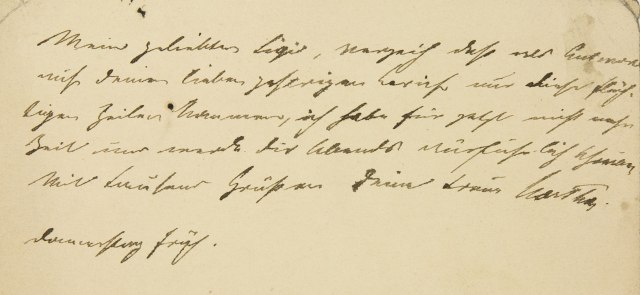 Mein geliebter, verzeih dass als Antwort
auf deinen lieben gestrigen nur diese flüch-
tigen Zeilen kommen, ich habe für jetzt nicht mehr
Zeit und werde dir Abends ausführlich schreiben
Mit tausend Grüßen Deine treue Martha.
Donnerstag früh.